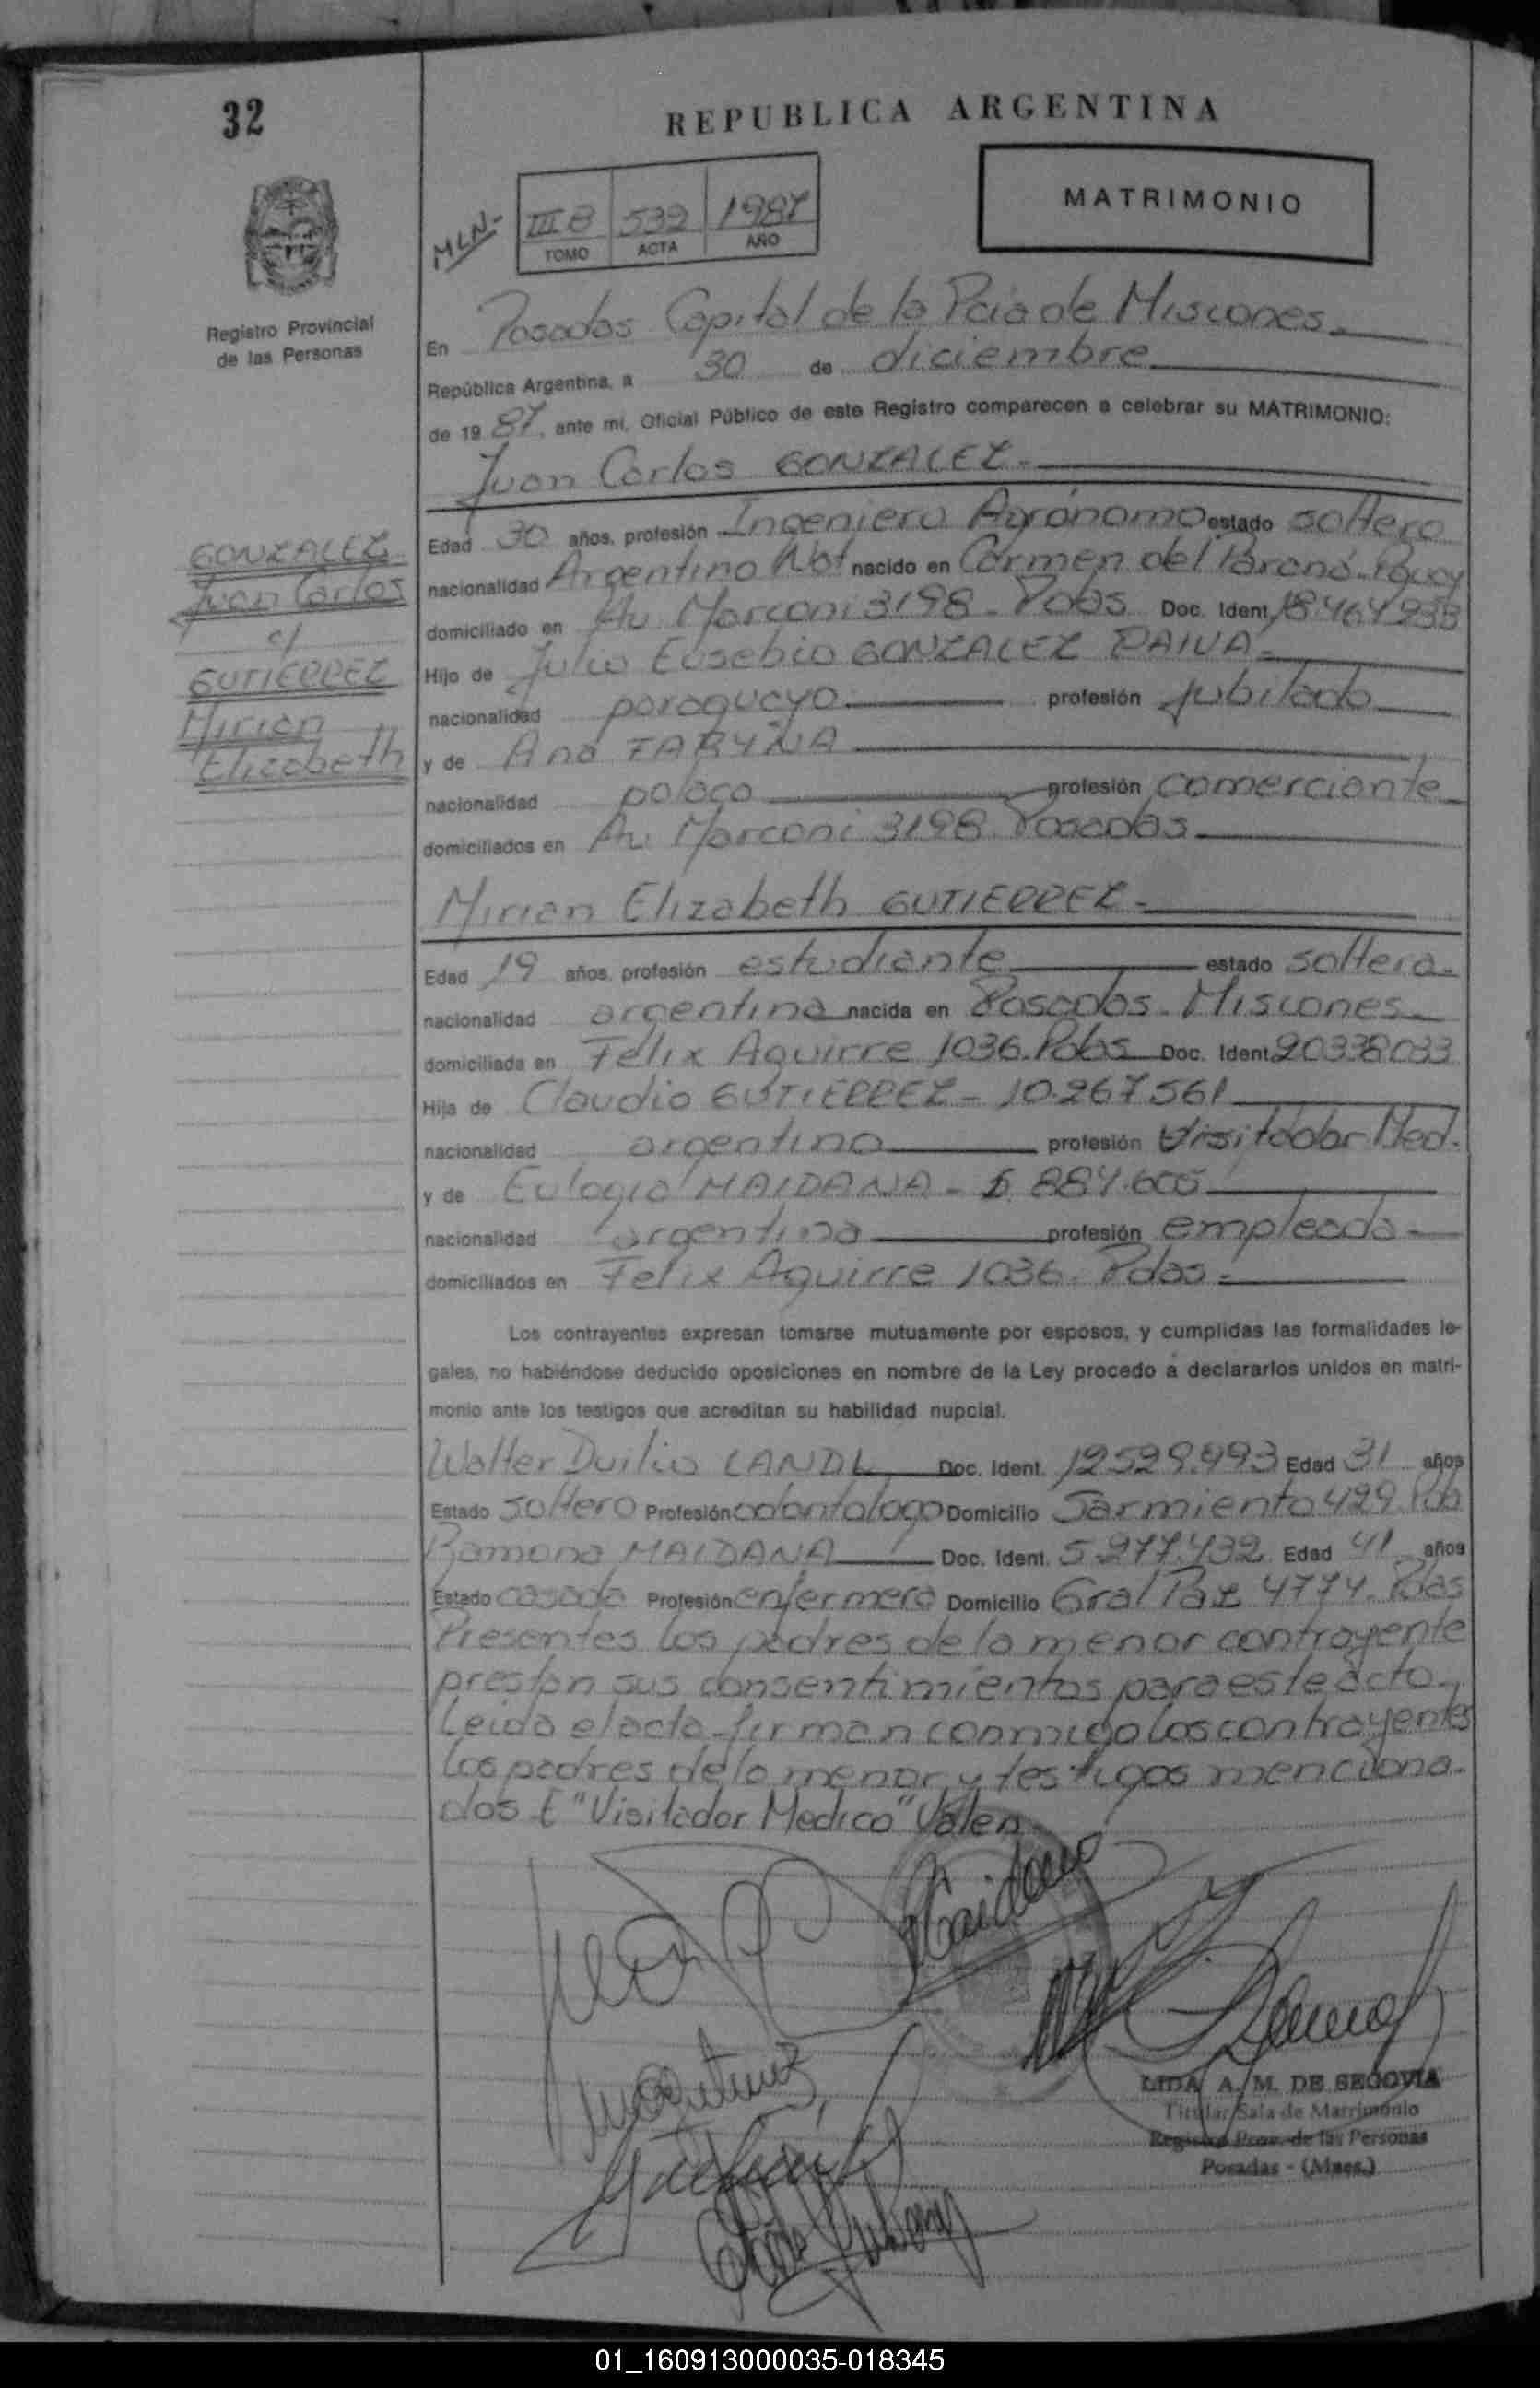 32
REPUBLICA ARGENTINA
MATRIMONIO
MLN-
III B 532 1987
TOMO ACTA AÑO
Registro Provincial
de las Personas
En Posadas Capital de la Pcia de Misiones.
República Argentina, a 30 de diciembre
de 1987, ante mí, Oficial Público de este Registro comparecen a celebrar su MATRIMONIO:
Juan Carlos GONZALEZ.
GONZALEZ
Juan Carlos
c/
GUTIERREZ
Mirian
Elizabeth
Edad 30 años, profesión Ingeniero Agrónomo estado soltero
nacionalidad Argentino Nat nacido en Carmen del Paraná-Paguay
domiciliado en Av. Marconi 3198 - Pdas Doc. Ident. 18.464.933
Hijo de Julio Eusebio GONZALEZ PAIVA-
nacionalidad paraguayo profesión jubilado
y de Ana FARYNA
nacionalidad polaca profesión comerciante
domiciliados en Av. Marconi 3198 Posadas
Mirian Elizabeth GUTIERREZ-
Edad 19 años, profesión estudiante estado soltera-
nacionalidad argentina nacida en Posadas. Misiones
domiciliada en Félix Aguirre 1036. Pdas Doc. Ident. 20338033
Hija de Claudio GUTIERREZ - 10.267561
nacionalidad argentino profesión Visitador Med.
y de Eulogia MAIDANA - 884.605
nacionalidad argentina profesión empleada-
domiciliados en Felix Aguirre 1036. Pdas-
Los contrayentes expresan tomarse mutuamente por esposos, y cumplidas las formalidades le-
gales, no habiéndose deducido oposiciones en nombre de la Ley procedo a declararlos unidos en matri-
monio ante los testigos que acreditan su habilidad nupcial.
Walter Duilio LANDL Doc. Ident. 12529.993 Edad 31 años
Estado soltero Profesión odontologo Domicilio Sarmiento 429
Ramona MAIDANA Doc. Ident. 5.277.432 Edad 41 años
Estado casada Profesión enfermera Domicilio Gral Paz 4774. Pdas
Presentes los padres de la menor contrayente
prestan sus consentimientos para este acto.
Leida el acta firman conmigo los contrayentes
los padres de la menor y testigos menciona-
dos E "Visitador Medico" Valen
Maidana
LIDA A. M. DE SEGOVIA
Titular Sala de Matrimonio
Registro Prov. de las Personas
Posadas - (Mnes.)
01_160913000035-018345